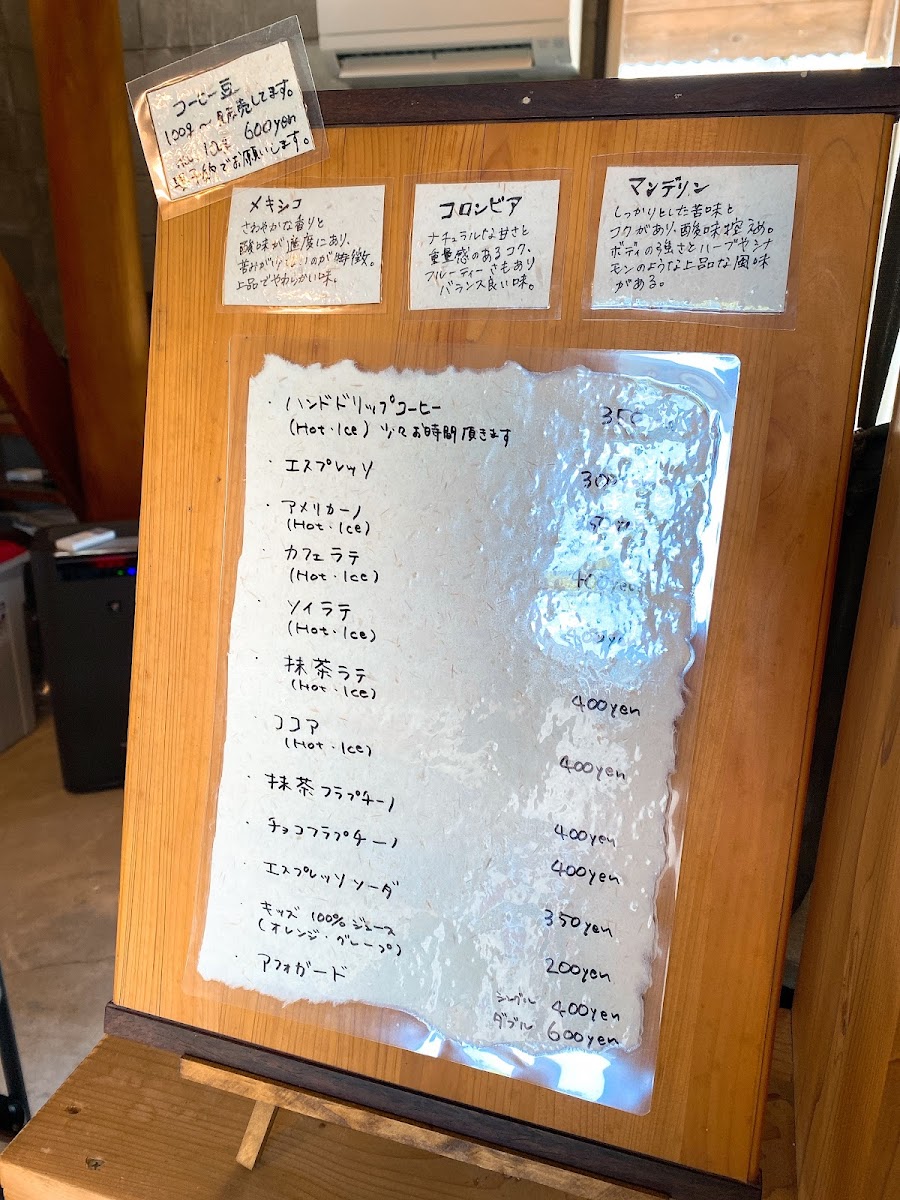 コーヒー豆
100g〜販売してます。
600yen
予約でお願いします。
メキシコ
さわやかな香りと
酸味が適度にあり、
苦みが少ないのが特徴。
上品でやわらかい味。
コロンビア
ナチュラルな甘さと
重量感のあるコク、
フルーティーさもあり
バランス良い味。
マンデリン
しっかりとした苦味と
コクがあり、酸味控えめ。
ボディの強さとハーブやシナ
モンのような上品な風味
がある。
・ハンドドリップコーヒー 350
(Hot・Ice) 少々お時間頂きます
・エスプレッソ 300
・アメリカーノ
(Hot・Ice)
・カフェラテ 400yen
(Hot・Ice)
・ソイラテ 400yen
(Hot・Ice)
・抹茶ラテ 400yen
(Hot・Ice)
・ココア 400yen
(Hot・Ice)
・抹茶フラプチーノ 400yen
・チョコフラプチーノ 400yen
・エスプレッソソーダ 350yen
・キッズ 100% ジュース 200yen
(オレンジ・グレープ)
・アフォガード シングル 400yen
ダブル 600yen